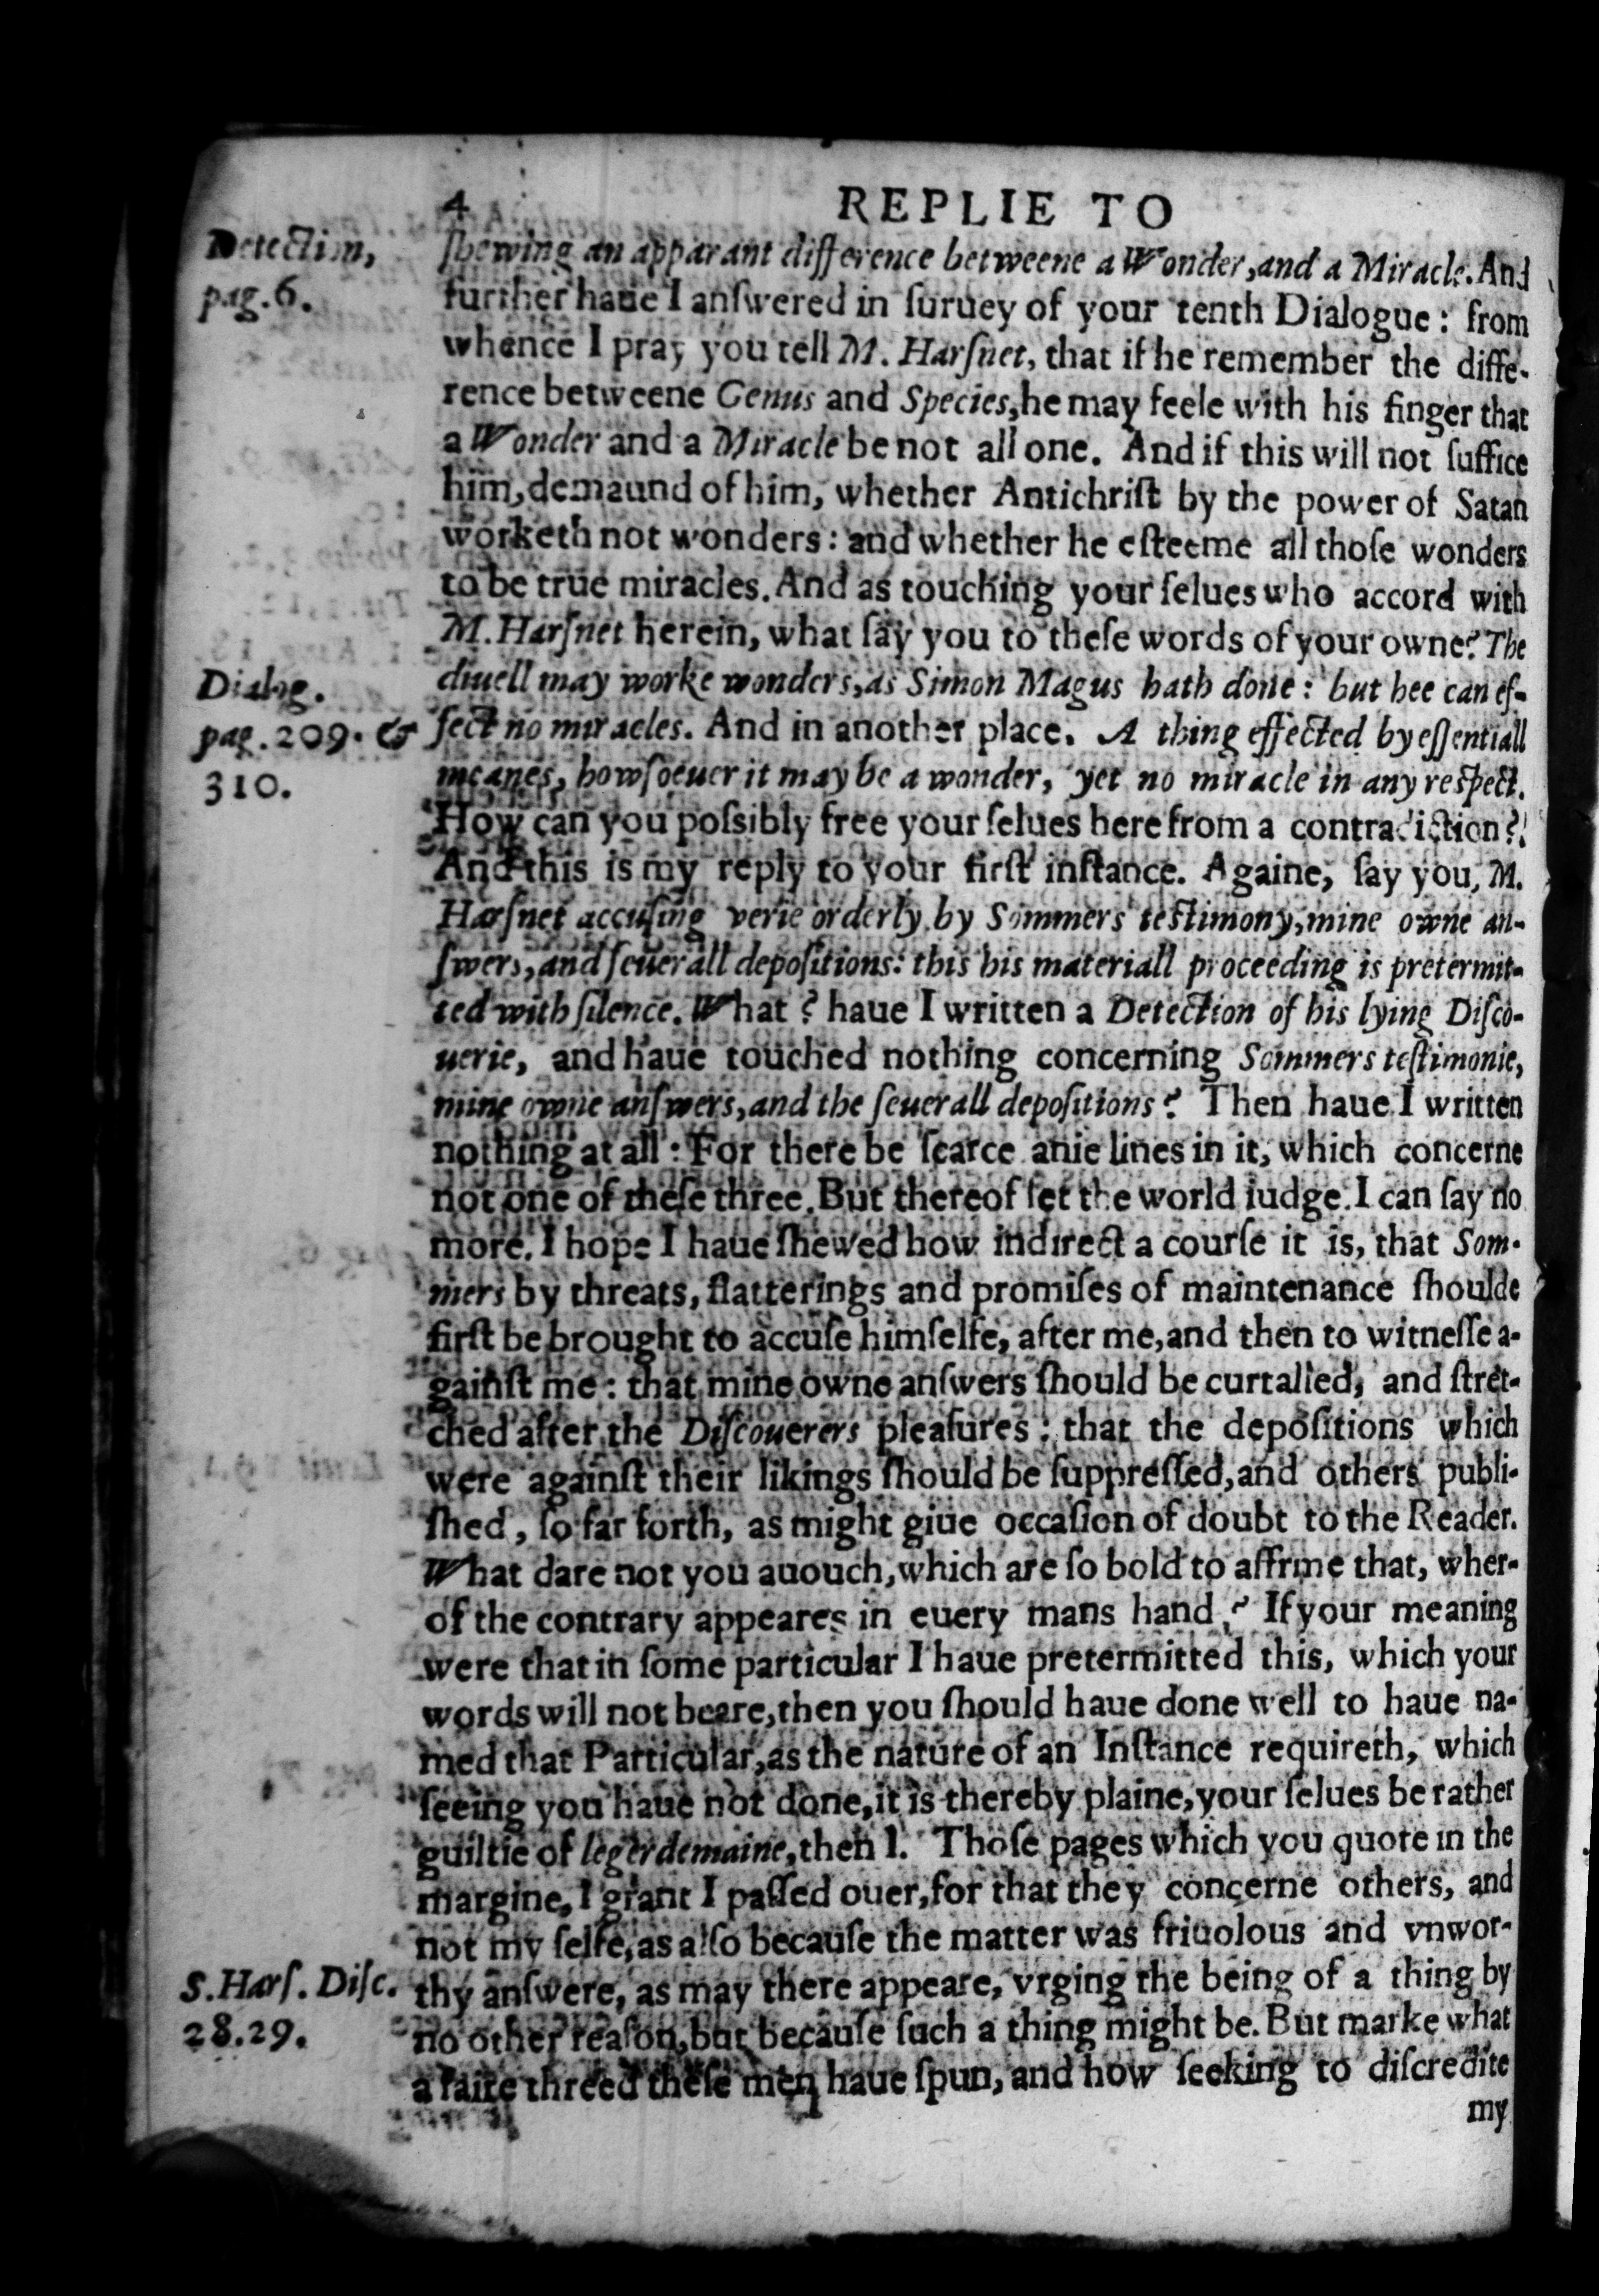 4 REPLIE TO
Detection,
pag.6.
ſhewing an apparant difference betweene a Wonder, and a Miracle. And
further haue I anſwered in ſuruey of your tenth Dialogue: from
whence I pray you tell M. Harſnet, that if he remember the diffe-
rence betweene Genus and Species, he may feele with his finger that
a Wonder and a Miracle be not all one. And if this will not ſuffice
him, demaund of him, whether Antichriſt by the power of Satan
worketh not wonders: and whether he eſteeme all thoſe wonders
to be true miracles. And as touching your ſelues who accord with
M. Harſnet herein, what ſay you to theſe words of your owne? The
Dialog.
pag. 209. &
310.
diuell may worke wonders, as Simon Magus hath done: but hee can ef-
fect no miracles. And in another place. A thing effected by eſſentiall
meanes, howſoeuer it may be a wonder, yet no miracle in any reſpect.
How can you poſsibly free your ſelues here from a contradiction?
And this is my reply to your firſt inſtance. Againe, ſay you, M.
Harſnet accuſing verie orderly by Sommers teſtimony, mine owne an-
ſwers, and ſeuerall depoſitions: this his materiall proceeding is pretermit-
ted with ſilence. What? haue I written a Detection of his lying Diſco-
uerie, and haue touched nothing concerning Sommers teſtimonie,
mine owne anſwers, and the ſeuerall depoſitions? Then haue I written
nothing at all: For there be ſcarce anie lines in it, which concerne
not one of theſe three. But thereof let the world iudge. I can ſay no
more. I hope I haue ſhewed how indirect a courſe it is, that Som-
mers by threats, flatterings and promiſes of maintenance ſhoulde
firſt be brought to accuſe himſelfe, after me, and then to witneſſe a-
gainſt me: that mine owne anſwers ſhould be curtalled, and ſtret-
ched after the Diſcouerers pleaſures: that the depoſitions which
were againſt their likings ſhould be ſuppreſſed, and others publi-
ſhed, ſo far forth, as might giue occaſion of doubt to the Reader.
What dare not you auouch, which are ſo bold to affrme that, wher-
of the contrary appeares in euery mans hand? If your meaning
were that in ſome particular I haue pretermitted this, which your
words will not beare, then you ſhould haue done well to haue na-
med that Particular, as the nature of an Inſtance requireth, which
ſeeing you haue not done, it is thereby plaine, your ſelues be rather
guiltie of legerdemaine, then I. Thoſe pages which you quote in the
margine, I grant I paſſed ouer, for that they concerne others, and
not my ſelfe, as alſo becauſe the matter was friuolous and vnwor-
S. Harſ. Diſc.
28.29.
thy anſwere, as may there appeare, vrging the being of a thing by
no other reaſon, but becauſe ſuch a thing might be. But marke what
a faire threed theſe men haue ſpun, and how ſeeking to diſcredite
my